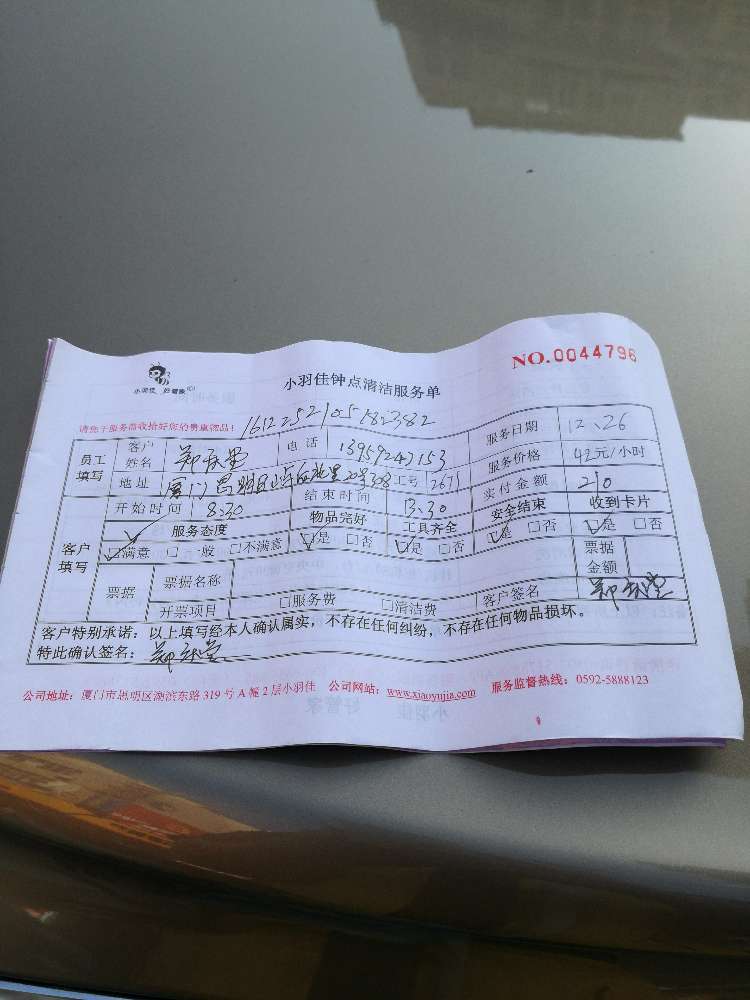 NO.0044796
小羽佳 好管家
小羽佳钟点清洁服务单
请您于服务前收拾好您的贵重物品!
161225210518 2382
员工填写 客户姓名 郑 电话 13959247153 服务日期 12、26
地址 厦门思明区 308 工号 2671 服务价格 42元/小时
开始时间 8:30 结束时间 13.30 实付金额 210
客户填写 服务态度 物品完好 工具齐全 安全结束 收到卡片
☑满意 □一般 □不满意 ☑是 □否 ☑是 □否 ☑是 □否 ☑是 □否
票据 票据名称 票据金额
开票项目 □服务费 □清洁费 客户签名 郑
客户特别承诺：以上填写经本人确认属实，不存在任何纠纷，不存在任何物品损坏。
特此确认签名： 郑
公司地址：厦门市思明区湖滨东路 319 号 A 幢 2 层小羽佳 公司网站：www.xiaoyujia.com 服务监督热线：0592-5888123